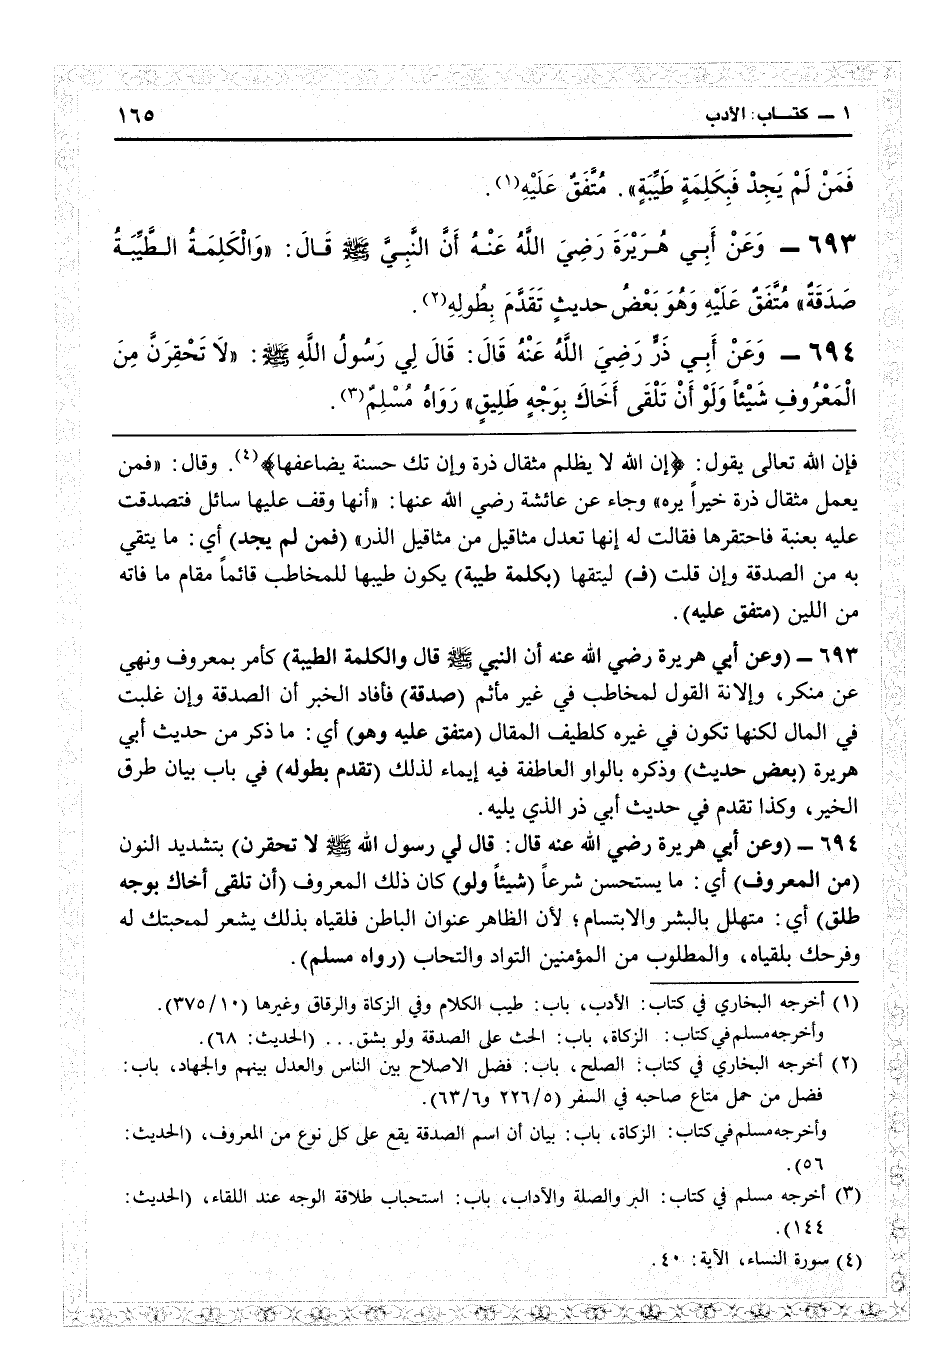 ١ – كتـــاب: الأدب ١٦٥
فَمَنْ لَمْ يَجِدْ فَبِكَلِمَةٍ طَيِّبَةٍ». مُتَّفَقٌ عَلَيْهِ(١).
٦٩٣ – وَعَنْ أَبِي هُرَيْرَةَ رَضِيَ اللَّهُ عَنْهُ أَنَّ النَّبِيَّ ﷺ قَالَ: «وَالْكَلِمَةُ الطَّيِّبَةُ
صَدَقَةٌ» مُتَّفَقٌ عَلَيْهِ وَهُوَ بَعْضُ حديثٍ تَقَدَّمَ بِطُولِهِ(٢).
٦٩٤ – وَعَنْ أَبِي ذَرٍّ رَضِيَ اللَّهُ عَنْهُ قَالَ: قَالَ لِي رَسُولُ اللَّهِ ﷺ: «لَا تَحْقِرَنَّ مِنَ
الْمَعْرُوفِ شَيْئاً وَلَوْ أَنْ تَلْقَى أَخَاكَ بِوَجْهٍ طَلِيقٍ» رَوَاهُ مُسْلِمٌ(٣).
فإن الله تعالى يقول: ﴿إن الله لا يظلم مثقال ذرة وإن تك حسنة يضاعفها﴾(٤). وقال: «فمن
يعمل مثقال ذرة خيراً يره» وجاء عن عائشة رضي الله عنها: «أنها وقف عليها سائل فتصدقت
عليه بعنبة فاحتقرها فقالت له إنها تعدل مثاقيل من مثاقيل الذر» (فمن لم يجد) أي: ما يتقي
به من الصدقة وإن قلت (فـ) ليتقها (بكلمة طيبة) يكون طيبها للمخاطب قائماً مقام ما فاته
من اللين (متفق عليه).
٦٩٣ – (وعن أبي هريرة رضي الله عنه أن النبي ﷺ قال والكلمة الطيبة) كأمر بمعروف ونهي
عن منكر، وإلانة القول لمخاطب في غير مأثم (صدقة) فأفاد الخبر أن الصدقة وإن غلبت
في المال لكنها تكون في غيره كلطيف المقال (متفق عليه وهو) أي: ما ذكر من حديث أبي
هريرة (بعض حديث) وذكره بالواو العاطفة فيه إيماء لذلك (تقدم بطوله) في باب بيان طرق
الخير، وكذا تقدم في حديث أبي ذر الذي يليه.
٦٩٤ – (وعن أبي هريرة رضي الله عنه قال: قال لي رسول الله ﷺ لا تحقرن) بتشديد النون
(من المعروف) أي: ما يستحسن شرعاً (شيئاً ولو) كان ذلك المعروف (أن تلقى أخاك بوجه
طلق) أي: متهلل بالبشر والابتسام؛ لأن الظاهر عنوان الباطن فلقياه بذلك يشعر لمحبتك له
وفرحك بلقياه، والمطلوب من المؤمنين التواد والتحاب (رواه مسلم).
(١) أخرجه البخاري في كتاب: الأدب، باب: طيب الكلام وفي الزكاة والرقاق وغيرها (٣٧٥/١٠).
وأخرجه مسلم في كتاب: الزكاة، باب: الحث على الصدقة ولو بشق... (الحديث: ٦٨).
(٢) أخرجه البخاري في كتاب: الصلح، باب: فضل الاصلاح بين الناس والعدل بينهم والجهاد، باب:
فضل من حمل متاع صاحبه في السفر (٢٢٦/٥ و٦٣/٦).
وأخرجه مسلم في كتاب: الزكاة، باب: بيان أن اسم الصدقة يقع على كل نوع من المعروف، (الحديث:
٥٦).
(٣) أخرجه مسلم في كتاب: البر والصلة والآداب، باب: استحباب طلاقة الوجه عند اللقاء، (الحديث:
١٤٤).
(٤) سورة النساء، الآية: ٤٠.